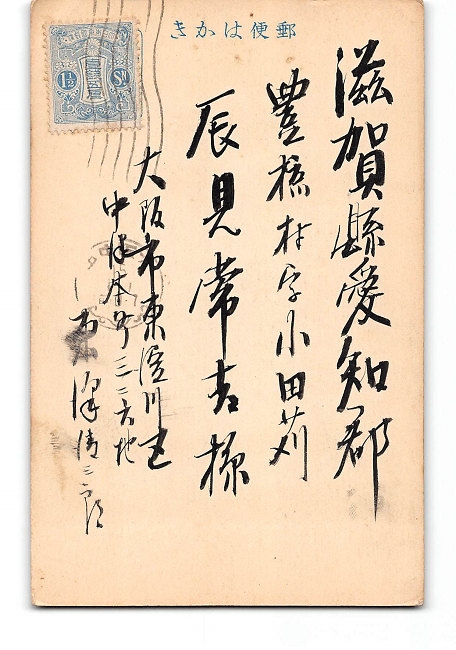 郵便はかき
滋賀縣愛知郡
豊椋村字小田苅
辰見常吉様
大阪市東淀川区
中津本町三三六地
澤清三郎
1½ Sn